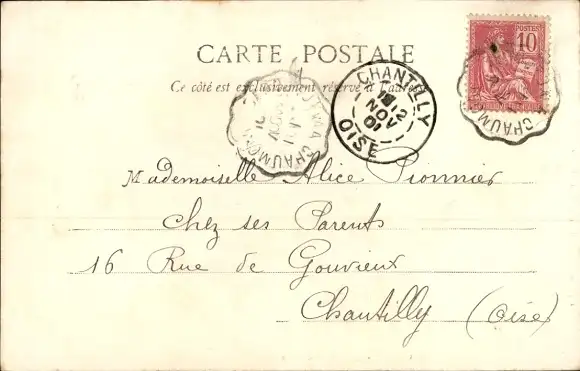 CARTE POSTALE
Ce côté est exclusivement réservé à l'adresse
POSTES
10
REPUBLIQUE FRANCAISE
CHAUMO
CHAUMO
CHANTILLY
12
NOV
01
OISE
Mademoiselle Alice Pionnier
Chez ses Parents
16 Rue de Gouvieux
Chantilly (Oise)